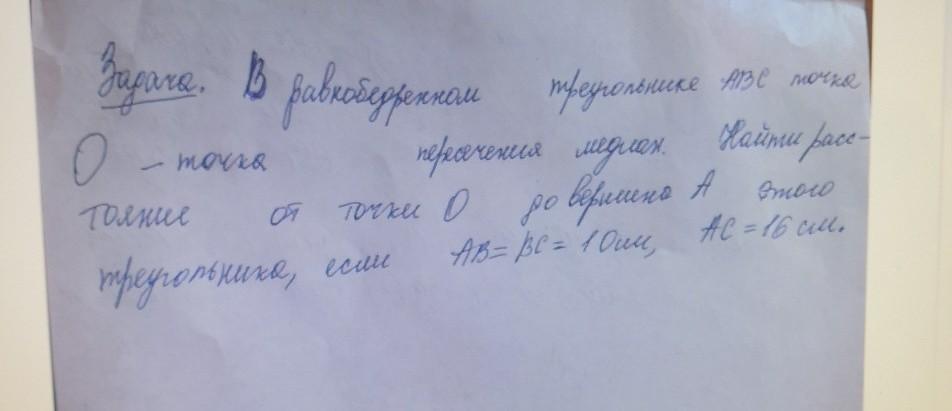 Задача. В равнобедренном треугольнике ABC точка
O – точка пересечения медиан. Найти расс-
тояние от точки O до вершина A этого
треугольника, если AB = BC = 10см, AC = 16 см.